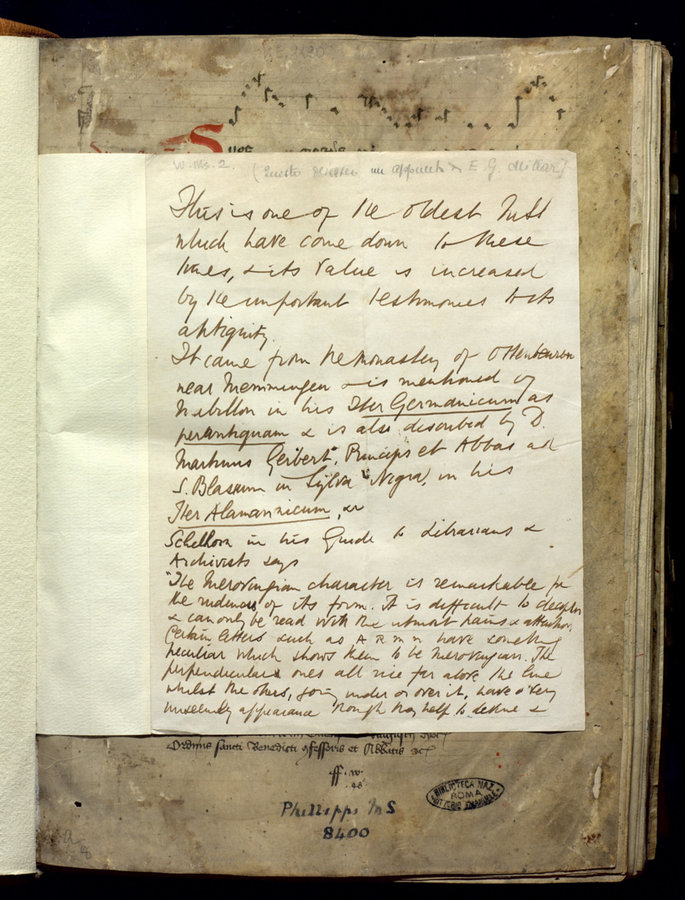 W. Ms. 2. ( E. G. Millar)
This is one of the oldest MSS
which have come down to these
times, & its value is increased
by the important testimonies to its
antiquity.
It came from the Monastery of Ottenburen
near Memmingen & is mentioned by
Mabillon in his Iter Germanicum as
perantiquam & is also described by D.
Martinus Gerbert", Princips et Abbas ad
S. Blasium in Sylva "Nigra, in his
Iter Alamannicum, &
Schelhorn in his Guide to Librarians &
Archivists says
"The Merovingian character is remarkable for
the rudeness of its form. It is difficult to decipher
& can only be read with the utmost pains & attention.
Certain letters such as A R m n have something
peculiar which shows them to be Merovingian. The
perpendicular ones all rise far above the line
whilst the others, going under or over it, have a very
unseemly appearance though they help to define &
Ordinis sancti Benedicti
et Abbatis
ff. w.
Phillipps MS
8400
BIBLIOTECA NAZ.
ROMA
VITTORIO EMANUELE